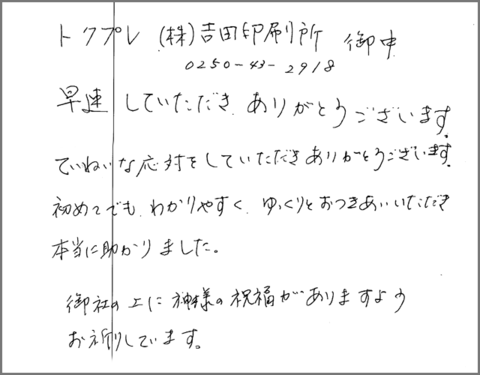 トクプレ (株)吉田印刷所 御中
0250-43-2918
早速 していただき ありがとうございます。
ていねいな応対をしていただきありがとうございます。
初めてでも わかりやすく、ゆっくりとおつきあいいただき
本当に助かりました。
御社の上に神様の祝福がありますよう
お祈りしています。